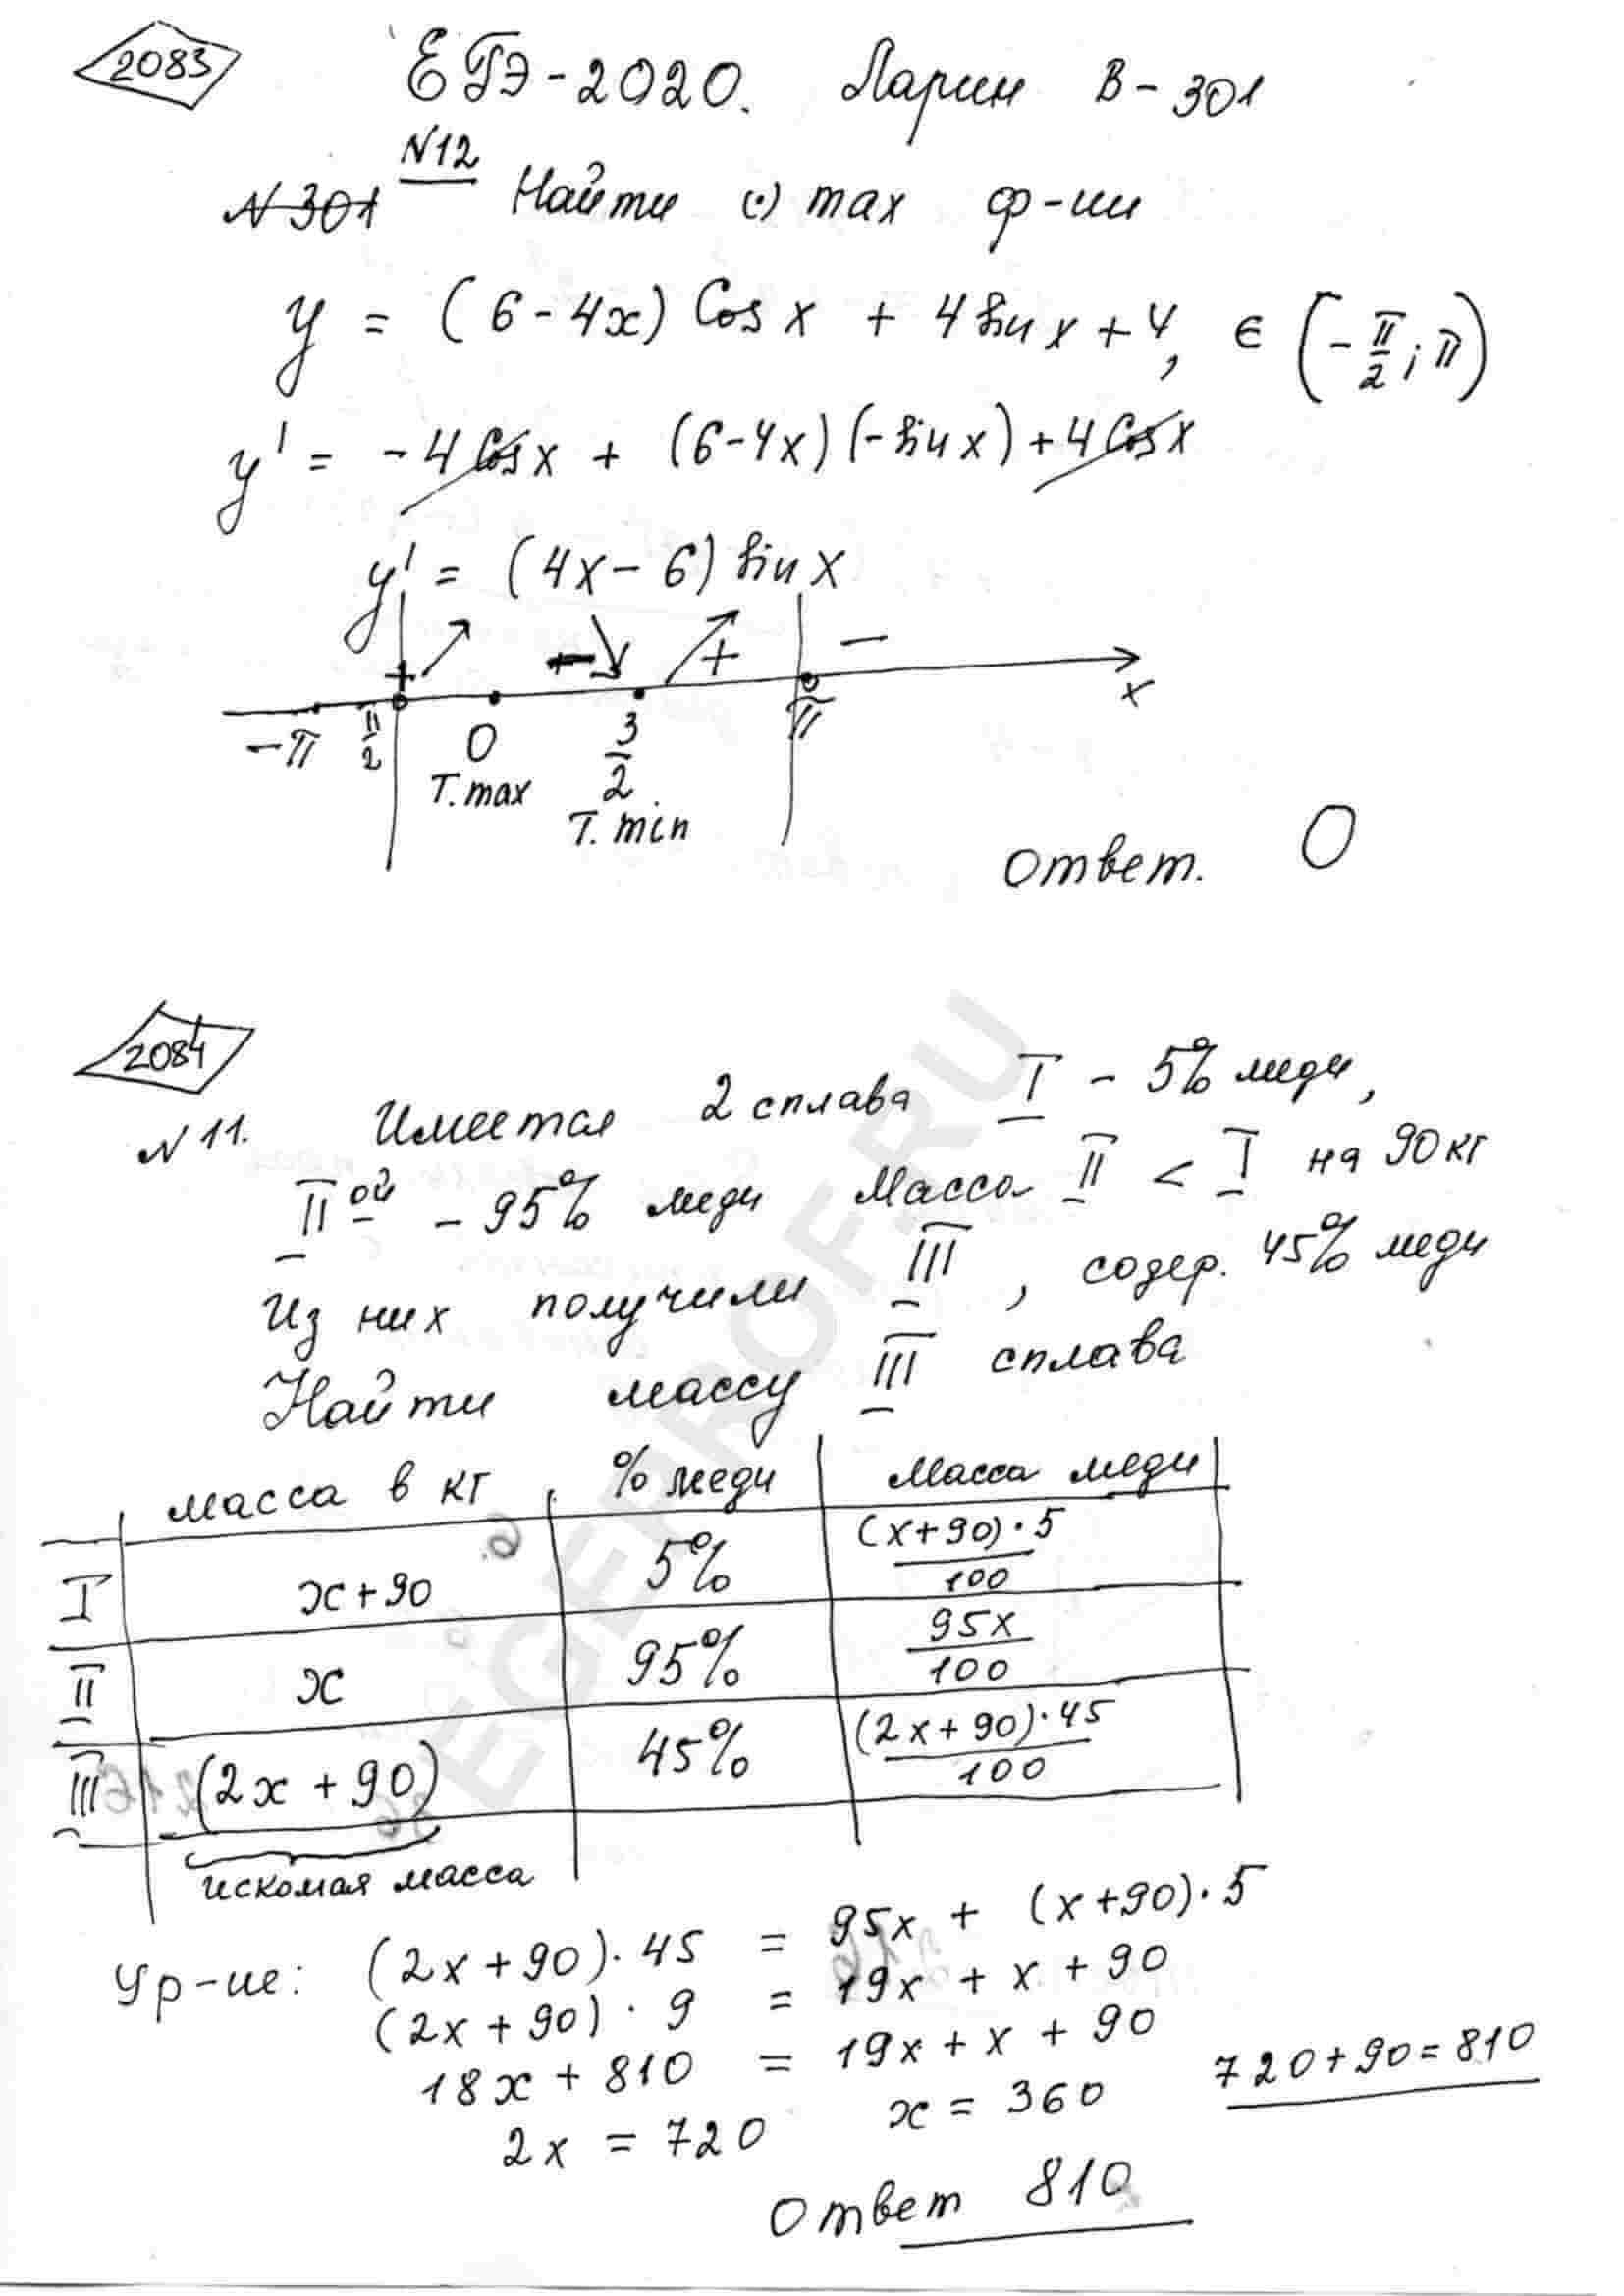 2083
ЕГЭ-2020. Ларин В-301
N12
N 301 Найти (·) max ф-ии
y = (6-4x) Cos x + 4 sin x + 4, ∈ (-π/2; π)
y' = -4 Cos x + (6-4x)(-sin x) + 4 Cos x
y' = (4x-6) sin x
+ - + -
-π π/2 0 3/2 π x
T. max T. min
Ответ. 0
2084
N 11. Имеется 2 сплава I - 5% меди,
II ой - 95% меди Масса II < I на 90 кг
Из них получили III, содер. 45% меди
Найти массу III сплава
масса в кг % меди Масса меди
I x+90 5% (x+90)·5/100
II x 95% 95x/100
III (2x+90) 45% (2x+90)·45/100
искомая масса
Ур-ие: (2x+90)·45 = 95x + (x+90)·5
(2x+90)·9 = 19x + x + 90
18x + 810 = 19x + x + 90
2x = 720 x = 360 720+90=810
Ответ 810
EGEPROF.RU